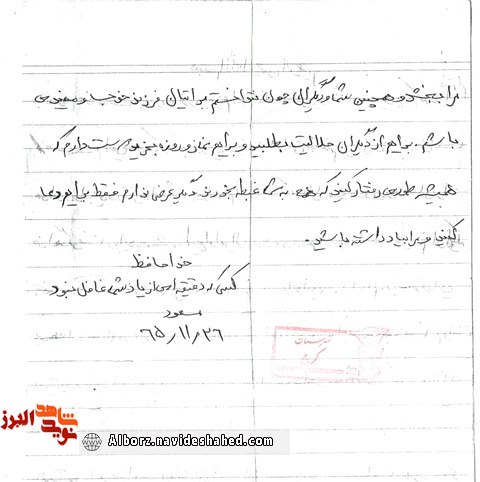 مرا ببخشد و همچنین شما و دیگران چون نتوانستم برایتان فرزند خوب و مفیدی
باشم. برایم از دیگران حلالیت بطلبید و برایم نماز و روزه بخرید دوست دارم که
همیشه طوری رفتار کنید که همه به شما غبطه بخورند دیگر عرضی ندارم فقط برایم دعا
کنید و مرا بیاد داشته باشید.
خداحافظ
کسی که دقیقه‌ای از یاد شما غافل نبود
مسعود
۶۵/۱۱/۲۶
شاهد
نوید
البرز
Alborz.navideshahed.com